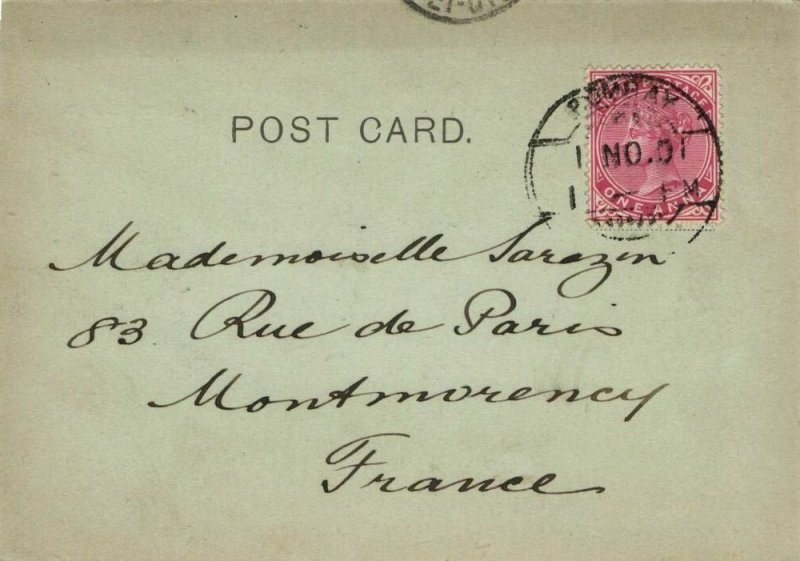 POST CARD.
BOMBAY
1 NO.01
ONE ANNA
Mademoiselle Sarazin
83 Rue de Paris
Montmorency
France